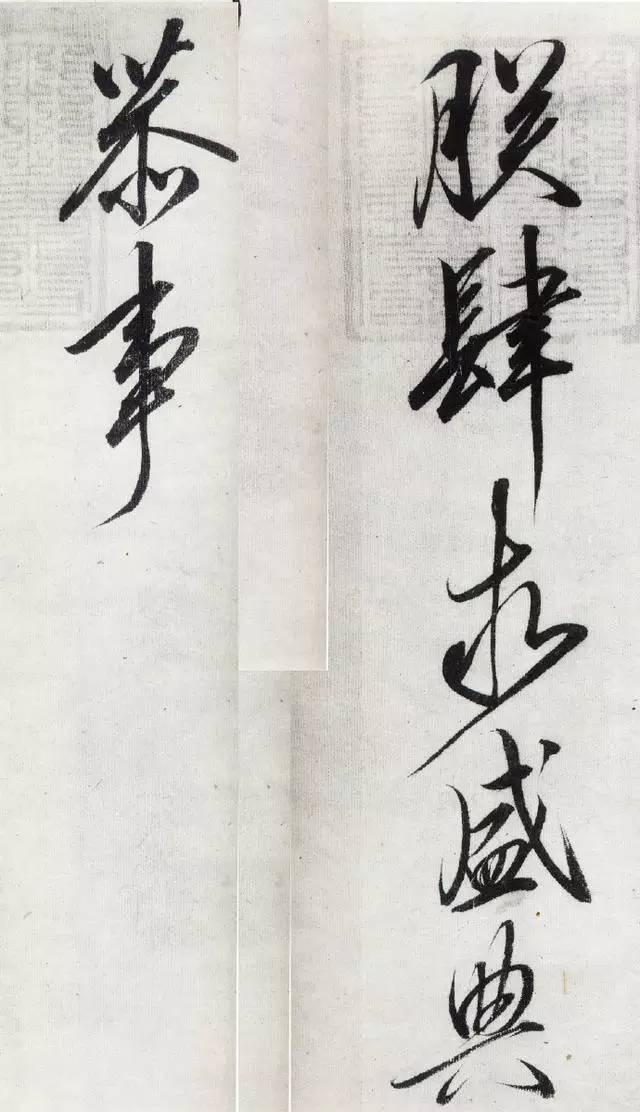 朕肆求盛典
恭事